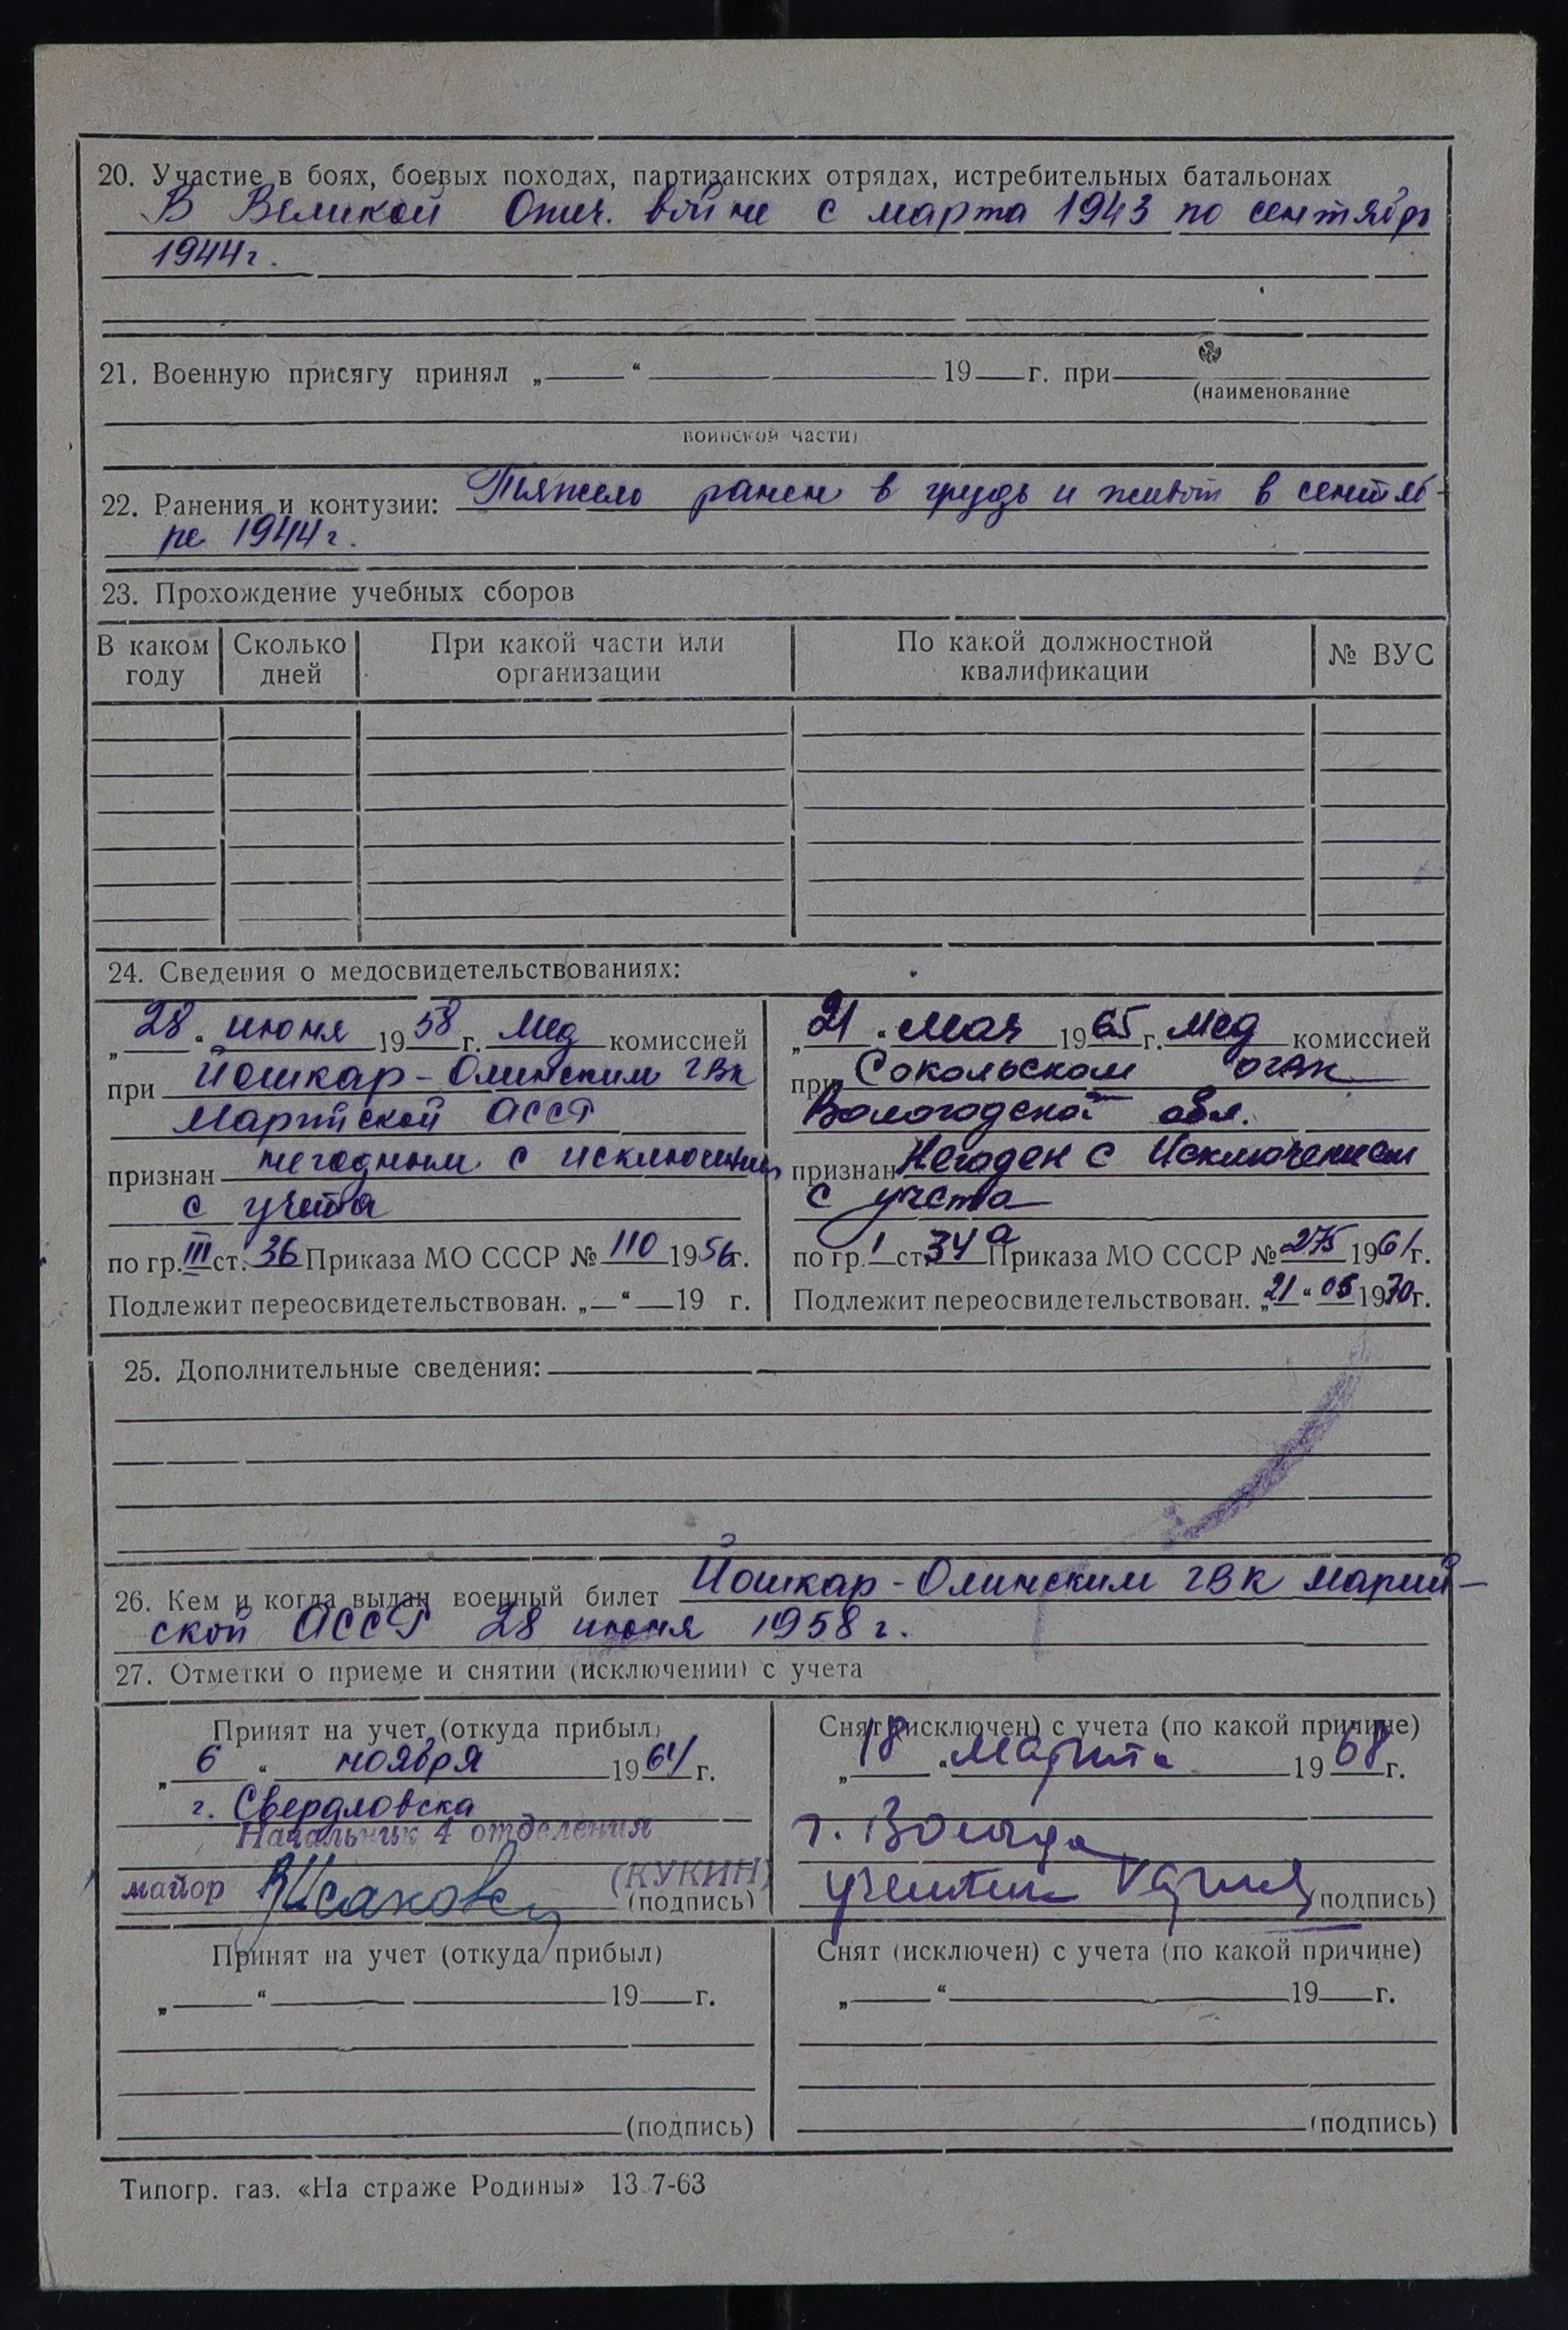 20. Участие в боях, боевых походах, партизанских отрядах, истребительных батальонах
В Великой Отеч. войне с марта 1943 по сентябрь
1944 г.
21. Военную присягу принял „ “ 19 г. при
(наименование
воинской части)
22. Ранения и контузии: Тяжело ранен в грудь и живот в сентяб-
ре 1944 г.
23. Прохождение учебных сборов
В каком году | Сколько дней | При какой части или организации | По какой должностной квалификации | № ВУС
24. Сведения о медосвидетельствованиях:
„28“ июня 1958 г. Мед комиссией
при Йошкар-Олинским ГВК
Марийской АССР
признан негодным с исключением
с учета
по гр. III ст. 36 Приказа МО СССР № 110 1956 г.
Подлежит переосвидетельствован. „—“ — 19 г.
„21“ мая 1965 г. Мед комиссией
при Сокольском ОГВК
Вологодской обл.
признан Негоден с Исключением
с учета
по гр. 1 ст. 34а Приказа МО СССР № 275 1961 г.
Подлежит переосвидетельствован. „21“ 05 1970 г.
25. Дополнительные сведения:
26. Кем и когда выдан военный билет Йошкар-Олинским ГВК Марий-
ской АССР 28 июня 1958 г.
27. Отметки о приеме и снятии (исключении) с учета
Принят на учет (откуда прибыл)
„6“ ноября 1964 г.
г. Свердловска
Начальник 4 отделения
майор (КУКИН)
(подпись)
Снят (исключен) с учета (по какой причине)
„18“ Марта 1968 г.
г. Вологда
(подпись)
Принят на учет (откуда прибыл)
„ “ 19 г.
(подпись)
Снят (исключен) с учета (по какой причине)
„ “ 19 г.
(подпись)
Типогр. газ. «На страже Родины» 13.7-63